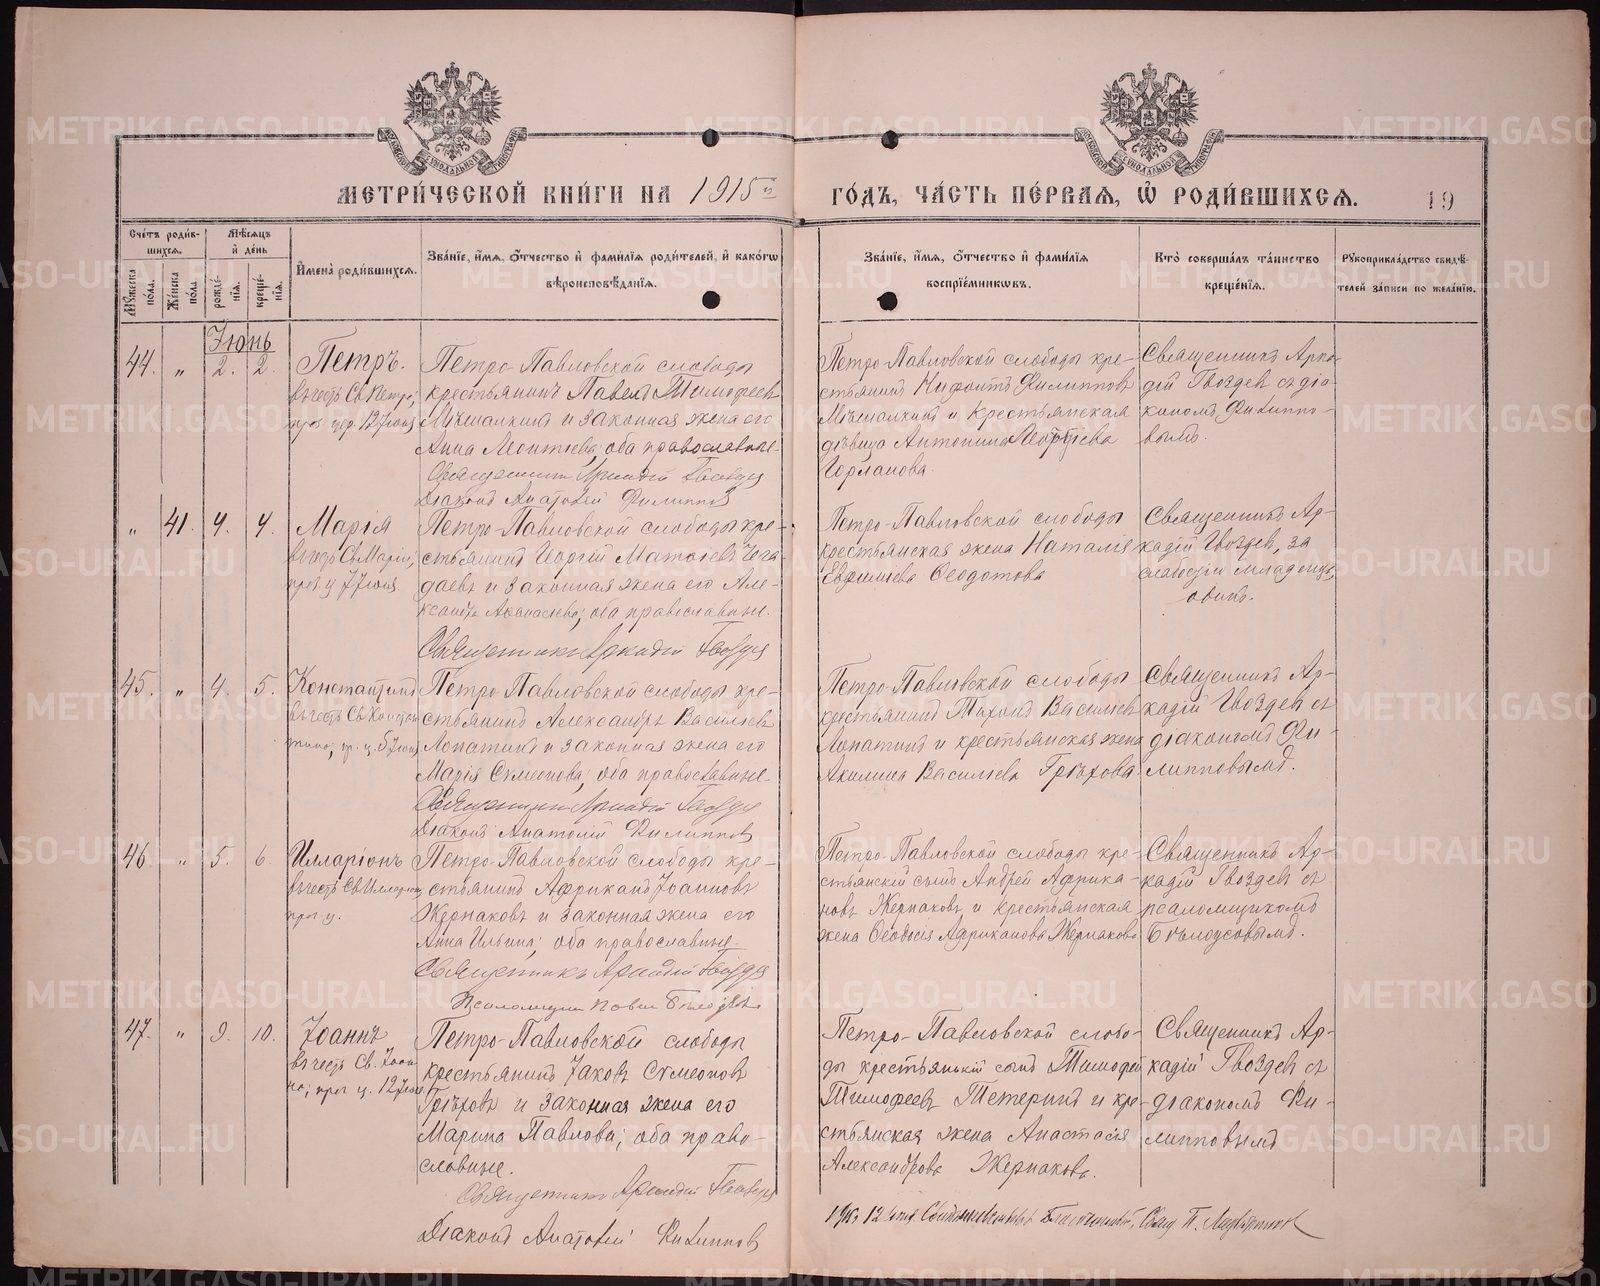 МЕТРИ́ЧЕСКОЙ КНИ́ГИ НА 1915й ГО́ДЪ, ЧА́СТЬ ПЕ́РВАЯ, Ѡ РОДИ́ВШИХСЯ.
19
Сче́тъ роди́в-
шихся.
Мѣ́сяцъ
и де́нь
Мꙋ́жеска
по́ла.
Же́нска
по́ла
рожде́-
нія.
креще́-
нія.
И́мена роди́вшихся.
Зва́ніе, и́мя, ѻ́тчество и фами́лія роди́телей, и како́гѡ
вѣроисповѣ́данія.
Зва́ніе, и́мя, ѻ́тчество и фами́лія
воспріе́мниковъ.
Кто̀ соверша́лъ та́инство
креще́нія.
Рꙋкоприкла́дство свидѣ́-
телей за́писи по жела́нію.
Іюнь
44. " 2. 2.
Петръ.
въ честь Св. Петра,
пра. цер. 12 Іюня
Петро-Павловской слободы
крестьянинъ Павелъ Тимофеев
Мѣшалкинъ и законная жена его
Анна Леонтьева; оба православные.
Священникъ Аркадій Гвоздев
Діаконъ Анатолій Филиппов
Петро-Павловской слободы кре-
стьянинъ Нифонтъ Филиппов
Мѣшалкинъ и крестьянская
дѣвица Антонина Георгіева
Горланова.
Священникъ Арка-
дій Гвоздев съ діа-
кономъ Филиппо-
вымъ.
" 41. 4. 4.
Марія
въ честь Св. Маріи,
пра. ц. 7 Іюня
Петро-Павловской слободы кре-
стьянинъ Георгій Матѳіевъ
даевъ и законная жена его Але-
ксандра Аѳанасіева; оба православные.
Священникъ Аркадій Гвоздев
Петро-Павловской слободы
крестьянская жена Наталія
Евфиміева Ѳеодотова
Священникъ Ар-
кадій Гвоздев, за
слабостію младенца,
одинъ.
45. " 4. 5.
Константинъ
въ честь Св. Констан
тина, пр. ц. 5 Іюня
Петро-Павловской слободы кре-
стьянинъ Александръ Васильев
Лопатинъ и законная жена его
Марія Сѵмеонова; оба православные.
Священникъ Аркадій Гвоздев
Діаконъ Анатолій Филиппов
Петро-Павловской слободы
крестьянинъ Тихонъ Васильев
Лопатинъ и крестьянская жена
Акилина Васильева Грѣхова.
Священникъ Ар-
кадій Гвоздев съ
діакономъ Фи-
липповымъ.
46. " 5. 6.
Илларіонъ
въ честь Св. Иларіона
пра. ц.
Петро-Павловской слободы кре-
стьянинъ Африканъ Іоаннов
Жернаковъ и законная жена его
Анна Ильина; оба православные.
Священникъ Аркадій Гвоздев
Псаломщик Павел Бѣлоусов
Петро-Павловской слободы кре-
стьянскій сынъ Андрей Африка-
новъ Жернаковъ и крестьянская
жена Ѳеодосія Африканова Жернакова
Священникъ Ар-
кадій Гвоздев съ
псаломщикомъ
Бѣлоусовымъ.
47. " 9. 10.
Іоаннъ
въ честь Св. Іоан
на; пра. ц. 12 Іюня
Петро-Павловской слободы
крестьянинъ Іаковъ Сѵмеонов
Грѣховъ и законная жена его
Марина Павлова; оба право-
славные.
Священникъ Аркадій Гвоздев
Діаконъ Анатолій Филиппов
Петро-Павловской слобо-
ды крестьянскій сынъ Тимофей
Тимофеевъ Тетеринъ и кре-
стьянская жена Анастасія
Александрова Жернакова.
Священникъ Ар-
кадій Гвоздев съ
діакономъ Фи-
липповымъ
Благочинный, Свящ. П.
METRIKI.GASO-URAL.RU